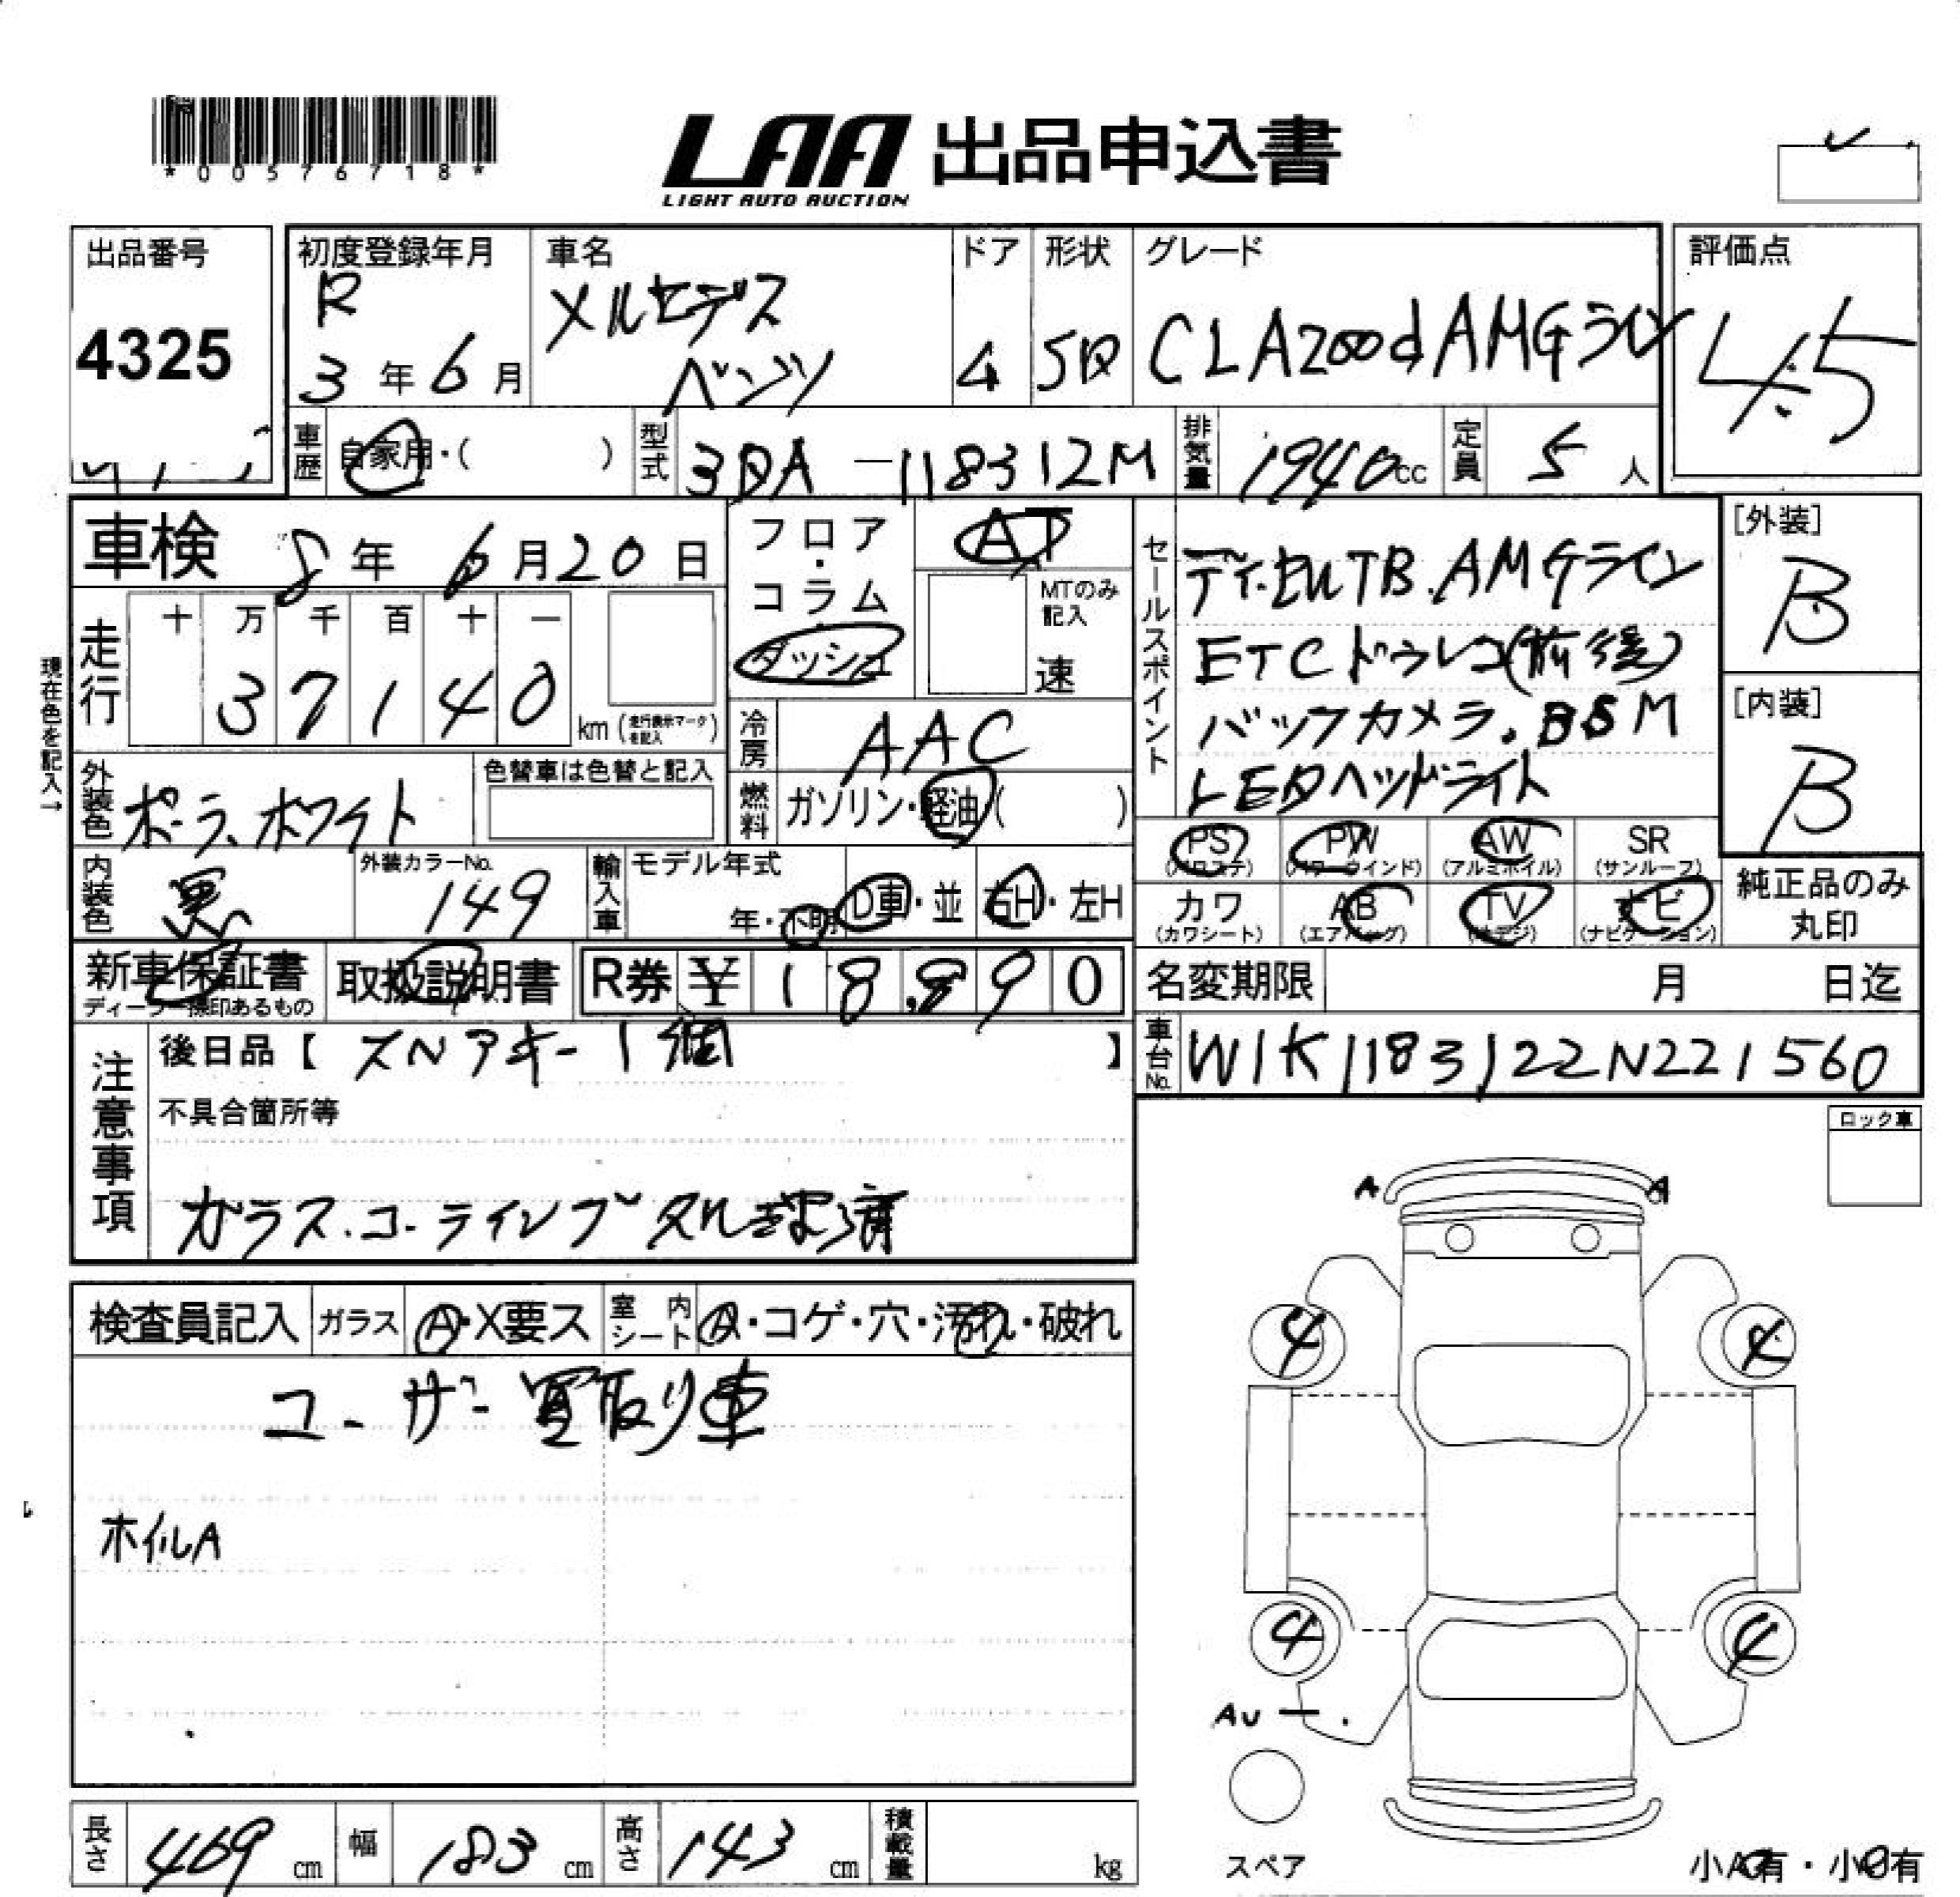 *00576718*
LAA 出品申込書
LIGHT AUTO AUCTION
出品番号
4325
初度登録年月
R
3年6月
車名
メルセデス
ベンツ
ドア
4
形状
SD
グレード
CLA200d AMGライン
評価点
4.5
車歴 自家用・( )
型式 3DA-118312M
排気量 1940cc
定員 5人
車検 8年6月20日
フロア・コラム
ダッシュ
AT
MTのみ記入
速
走行 十 万 千 百 十 一
37140
km (走行表示マークを記入)
現在色を記入→
冷房 AAC
燃料 ガソリン・軽油・( )
外装色 ポーラーホワイト
色替車は色替と記入
内装色 黒
外装カラーNo.
149
輸入車 モデル年式
年・不明
D車・並
右H・左H
セールスポイント
ディーゼルTB.AMGライン
ETCドラレコ(前後)
バックカメラ.BSM
LEDヘッドライト
[外装]
B
[内装]
B
PS (パワステ)
PW (パワーウインド)
AW (アルミホイル)
SR (サンルーフ)
カワ (カワシート)
AB (エアバッグ)
TV (地デジ)
ナビ (ナビゲーション)
純正品のみ
丸印
新車保証書
ディーラー捺印あるもの
取扱説明書
R券 ¥18,890
名変期限 月 日迄
車台No. W1K1183122N221560
注意事項
後日品【スペアキー1個】
不具合箇所等
ガラス.コーティング
ロック車
A A
検査員記入 ガラス A・X要ス 室内シート A・コゲ・穴・汚れ・破れ
ユーザー買取り車
ホイルA
4 4
4 4
AU
スペア
長さ 469cm
幅 183cm
高さ 143cm
積載量 kg
小A有・小U有